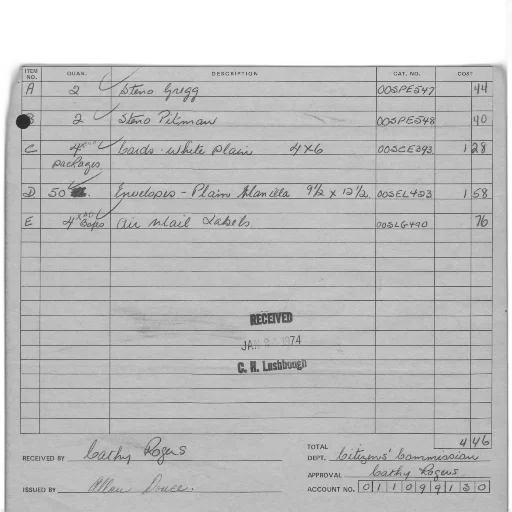 ITEM NO. QUAN. DESCRIPTION CAT. NO. COST
A 2 Steno Gregg 00SPE547 44
B 2 Steno Pitman 00SPE548 40
C 4 Cards - White plain 4X6 00SCE393 1 28
packages
D 50 Envelopes - Plain Manilla 9½ x 12½ 00SEL423 1 58
E 4 Boxes Air Mail Labels 00SLG490 76
RECEIVED
JAN 1974
C. H. Lashbough
TOTAL 4 46
RECEIVED BY Cathy Rogers DEPT. Citizens' Commission
APPROVAL Cathy Rogers
ISSUED BY Allan
ACCOUNT NO. 011099130